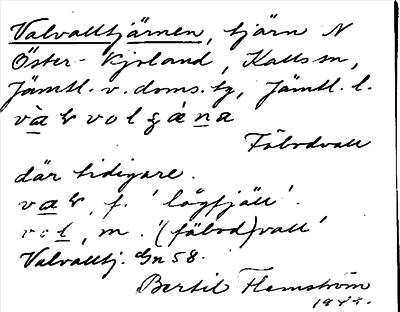 Valvalltjärnen, tjärn N
Öster-Kjoland, Kalls sn,
Jämtl. v. doms.tg, Jämtl. l.
Fäbodvall
där tidigare.
f. 'lågfjäll'.
m. '(fäbod)vall'
Valvalltj. Gn 58.
Bertil Flemström